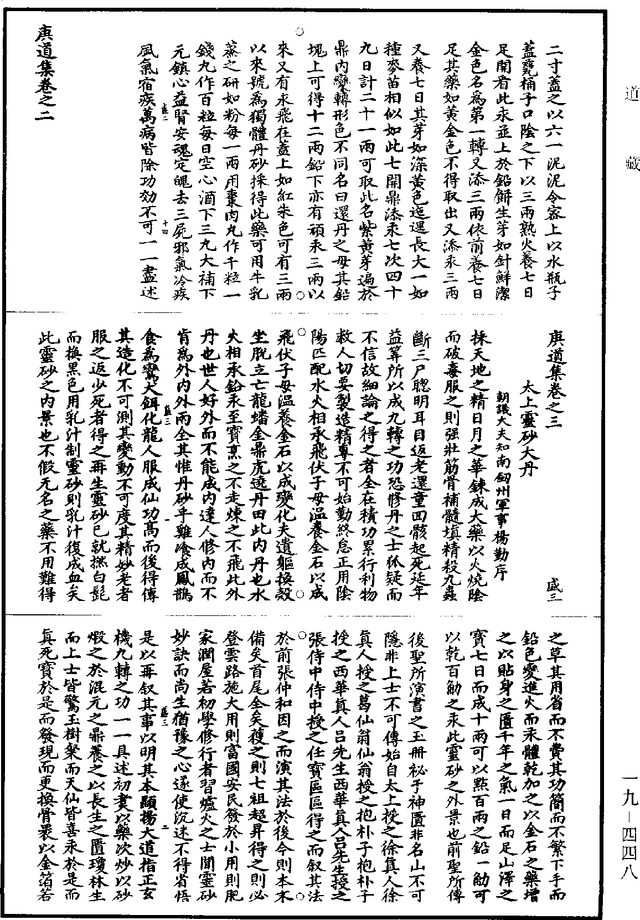 道藏
二寸蓋之以六一泥泥令密上以水瓶子
蓋甕桶子口陰之下以三兩熟火養七日
足開看此永並上於鉛餅生芽如針鮮潔
金色名為第一轉又添三兩依前養七日
足其藥如黃金色不得取出又添汞三兩
又養七日其芽如深黃色迤邐長大一如
種麥苗相似如此七開鼎添汞七次四十
九日計二十一兩可取此名紫黃芽遍於
鼎內變轉形色不同名曰還丹之母其鉛
塊上可得十二兩鉛下亦有頑汞三兩以
來又有汞飛在蓋上如紅朱色可有三兩
以來號為獨體丹砂採得此藥可用牛乳
蒸之研如粉每一兩用棗肉丸作千粒一
錢九作百粒每日空心酒下三九大補下
元鎮心益腎安魂定魄去三屍邪氣冷疾
風氣宿疾萬病皆除功効不可一一盡述
庚道集卷之二
庚道集卷之三
盛三
太上靈砂大丹
朝議大夫知南劒州軍事楊勤序
採天地之精日月之華鍊成大藥以火燒陰
而破毒服之則強壯筋骨補髓填精殺九蟲
斷三尸聰明耳目返老還童四骸起死延年
益筭所以成九轉之功恐修丹之士狐疑而
不信故細論之得之者全在積功累行利物
救人切要製造精專不可始勤終怠正用陰
陽匹配水火相承飛伏子母溫養金石以成
飛伏子母溫養金石以成變化夫遺軀換殼
坐脫立亡龍蟠金鼎虎遶丹田此內丹也水
火相承鉛汞至寶烹之不走煉之不飛此外
丹也世人好外而不能成內達人修內而不
肯為外內外兩全其惟丹砂乎雞飡成鳳鵲
食為鸞犬餌化龍人服成仙功高而後得傳
其造化不可測其變動不可度其精妙老者
服之返少死者得之再生靈砂已就撚白髭
而換黑色用乳汁制靈砂則乳汁復成血矣
此靈砂之內景也不假无名之藥不用難得
之草其用省而不費其功簡而不繁下手而
鉛色變進火而汞體乾加之以金石之藥增
之以貼身之匱千年之氣一日而足山澤之
寶七日而成十兩可以點百兩之鉛一觔可
以乾百觔之汞此靈砂之外景也前聖所傳
後聖所演書之玉冊祕子神匱非名山不可
隱非上士不可傳始自太上授之徐真人徐
真人授之葛仙翁仙翁授之抱朴子抱朴子
授之西華真人呂先生西華真人呂先生授之
張侍中侍中授之任寶區區得之而叙其法
於前張仲和因之而演其法於後今則本末
備矣首尾全矣獲之則七祖超昇得之則必
登雲路施大用則富國安民發於小用則肥
家潤屋若初學修行者習爐火之士聞靈砂
妙訣而尚生猶豫之心遂使沉迷不得省悟
是以再叙其事以明其本顯揚大道指正玄
機九轉之功一一具述初變以藥次炒以砂
煅之於混元之鼎養之以長生之匱瓊林生
而上士皆驚玉樹槷而天仙皆喜汞於是而
真死寶於是而發現而更換骨裹以金箔若
一九—四四八